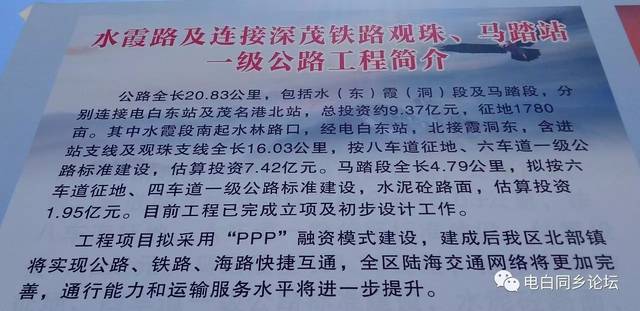 水霞路及连接深茂铁路观珠、马踏站
一级公路工程简介
公路全长20.83公里，包括水（东）霞（洞）段及马踏段，分
别连接电白东站及茂名港北站，总投资约9.37亿元，征地1780
亩。其中水霞段南起水林路口，经电白东站，北接霞洞东，含进
站支线及观珠支线全长16.03公里，按八车道征地、六车道一级公
路标准建设，估算投资7.42亿元。马踏段全长4.79公里，拟按六
车道征地、四车道一级公路标准建设，水泥砼路面，估算投资
1.95亿元。目前工程已完成立项及初步设计工作。
工程项目拟采用“PPP”融资模式建设，建成后我区北部镇
将实现公路、铁路、海路快捷互通，全区陆海交通网络将更加完
善，通行能力和运输服务水平将进一步提升。
电白同乡论坛